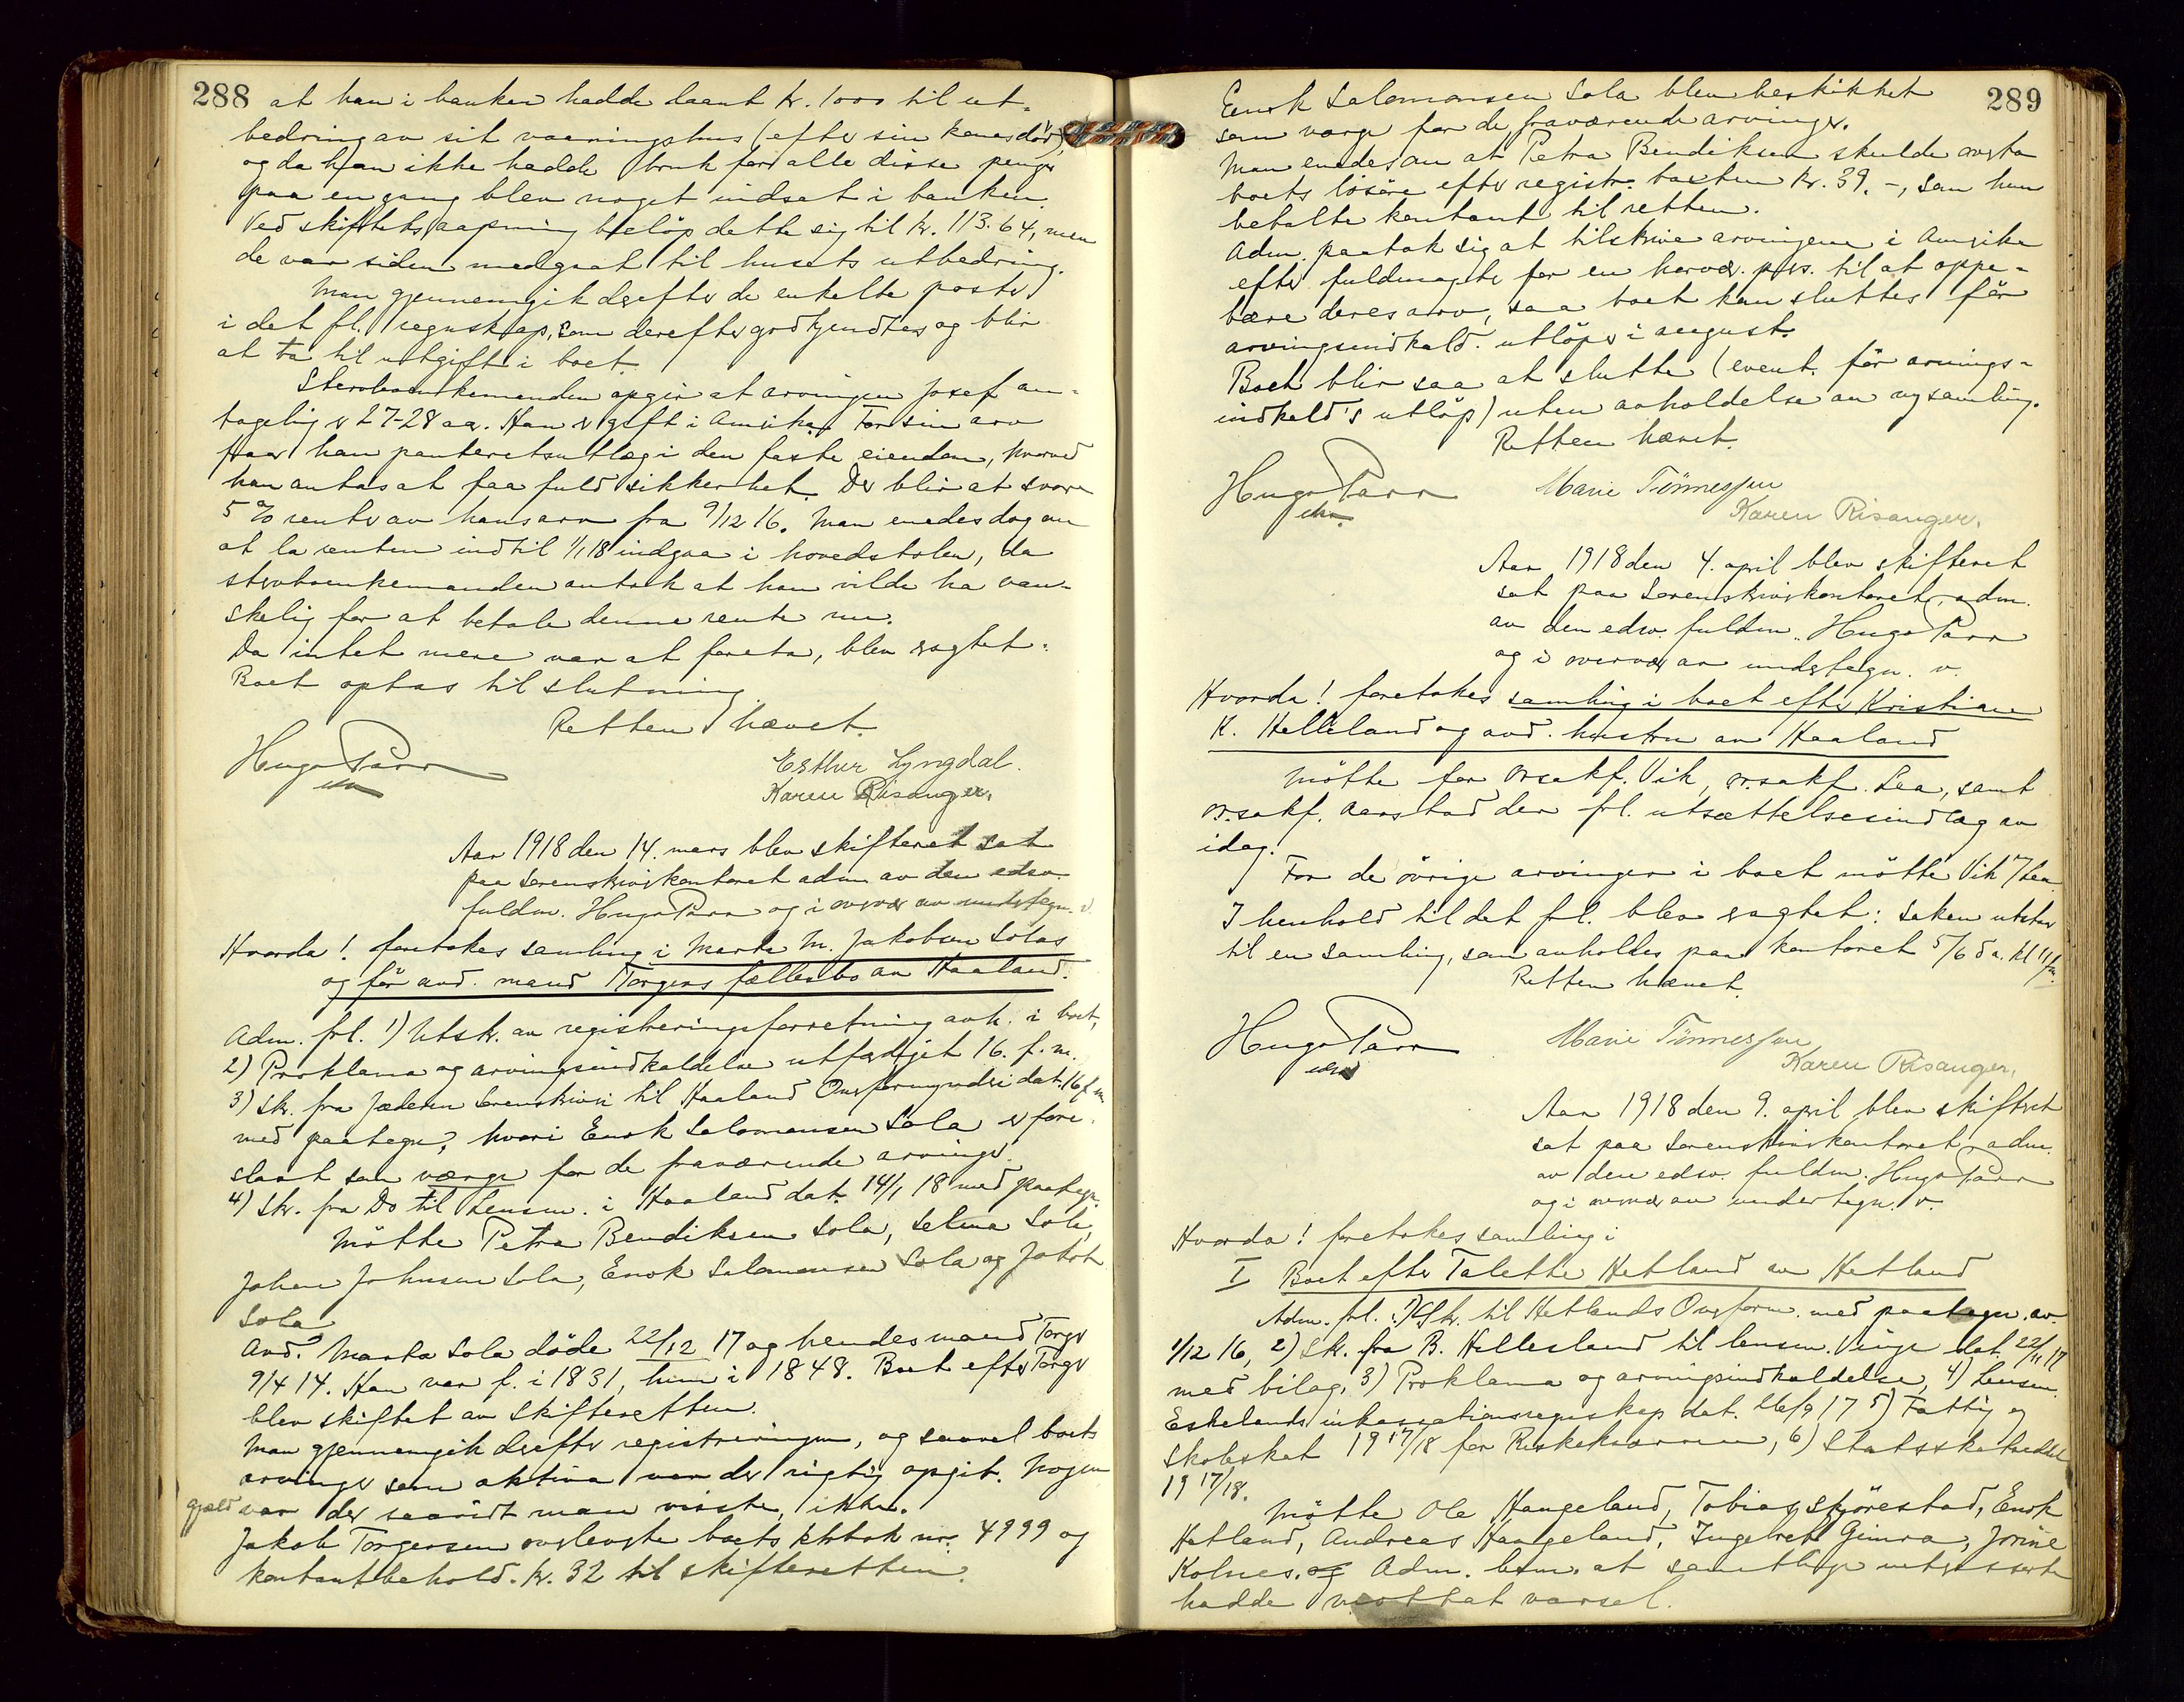 288
at han i banken hadde laant kr. 1000 til ut-
bedring av sit vaaningshus (efter sin kones död),
og da han ikke hadde bruk for alle disse penger
paa en gang blev noget indsat i banken.
Ved skiftets aapning belöp dette sig til kr. 113.64, men
de var siden medgaat til husets utbedring.
Man gjennemgik derefter de enkelte poster
i det frl. regnskap, som derefter godkjendtes og blir
at ta til utgift i boet.
Stervboenkemanden opgir at arvingen Josef an-
tagelig er 27-28 aar. Han er gift i Amerika. For sin arv
faar han panteretsutlæg i den faste eiendom, hvorved
han antas at faa fuld sikkerhet. Der blir at svare
5 % rente av hans arv fra 9/12 16. Man enedes dog om
at la renten indtil 1/1 18 indgaa i hovedstolen, da
stervboenkemanden antok at han vilde ha van-
skelig for at betale denne rente nu.
Da intet mere var at foreta, blev eragtet:
Boet optas til slutning
Retten hævet.
Hugo Parr
edsv.
Esther Lyngdal.
Karen Risanger.
Aar 1918 den 14. mars blev skifteret sat
paa Sorenskriverkontoret adm. av den edsv.
fuldm. Hugo Parr og i overvær av undertegn. v.
Hvorda! foretokes samling i Marta M. Jakobsen Solas
og før avd. mand Torgers fællesbo av Haaland.
Adm. frl. 1) Utskr. av registreringsforretning avh. i boet,
2) Proklama og arvingsindkaldelse utfærdiget 16. f. m.
3) Skr. fra Jæderen Sorenskriveri til Haaland Overformynderi dat. 16. f. m.
med paategn., hvori Enok Salomonsen Sola er fore-
slaat som værge for de fraværende arvinger.
4) Skr. fra Do til Lensm. i Haaland dat. 14/1 18 med paategn.
Mötte Petra Bendiksen Sola, Selma Sola,
Johan Johnsen Sola, Enok Salomonsen Sola og Jakob
Sola
Avd. Marta Sola döde 22/12 17 og hendes mand Torger
9/4 14. Han var f. i 1831, hun i 1848. Boet efter Torger
blev skiftet av skifteretten.
Man gjennemgik derefter registreringen, og saavel boets
arvinger som aktiva var der rigtig opgit. Nogen
gjæld var der saavidt man visste, ikke.
Jakob Torgersen overleverte boets kbok nr. 4999 og
kontantbehold. kr. 32 til skifteretten.
289
Enok Salomonsen Sola blev beskikket
som værge for de fraværende arvinger.
Man enedes om at Petra Bendiksen skulde overta
boets lösöre efter registr. taxten kr. 39.-, som hun
betalte kontant til retten.
Adm. paatok sig at tilskrive arvingene i Amerika
efter fuldmagter for en hervær. pers. til at oppe-
bære deres arv, saa boet kan sluttes för
arvingsindkald. utlöper i august.
Boet blir saa at slutte (event. för arvings-
indkald's utlöp) uten avholdelse av ny samling.
Retten hævet.
Hugo Parr
edsv.
Marie Tönnessen
Karen Risanger.
Aar 1918 den 4. april blev skifteret
sat paa Sorenskriverkontoret, adm.
av den edsv. fuldm. Hugo Parr
og i overvær av undertegn. v.
Hvorda! foretokes samling i boet efter Kristian
K. Helleland og avd. hustru av Haaland
Mötte for orsakf. Vik, o.r.sakf. Lea, samt
o.r.sakf. Aarstad der frl. utsættelsesindlæg av
idag.
For de övrige arvinger i boet mötte Vik Lea.
I henhold til det frl. blev eragtet: Saken utstaar
til en samling, som avholdes paa kontoret 5/6 d a. kl 11 fm.
Retten hævet.
Hugo Parr
edsv.
Marie Tönnessen
Karen Risanger.
Aar 1918 den 9. april blev skifteret
sat paa Sorenskriverkontoret, adm.
av den edsv. fuldm. Hugo Parr
og i overvær av undertegn. v.
Hvorda! foretokes samling i
I Boet efter Talette Hetland av Hetland
Adm. frl. 1) Skr. til Hetlands Overform. med paategn. av
1/12 16, 2) Skr. fra B. Hellesland til lensm. Vinje dat. 22/11 17
med bilag, 3) Proklama og arvingsindkaldelse, 4) Lensm.
Eskelands inkassationsregnskap dat. 26/9 17 5) Fattig og
skoleskat 1917/18 for Riskekvernen, 6) Statsskatseddel
1917/18.
Mötte Ole Haugeland, Tobias Skjörestad, Enok
Hetland, Andreas Haugeland, Ingebret Gimra, Jorine
Kolnes. og Adm. bem. at samtlige interesserte
hadde mottat varsel.